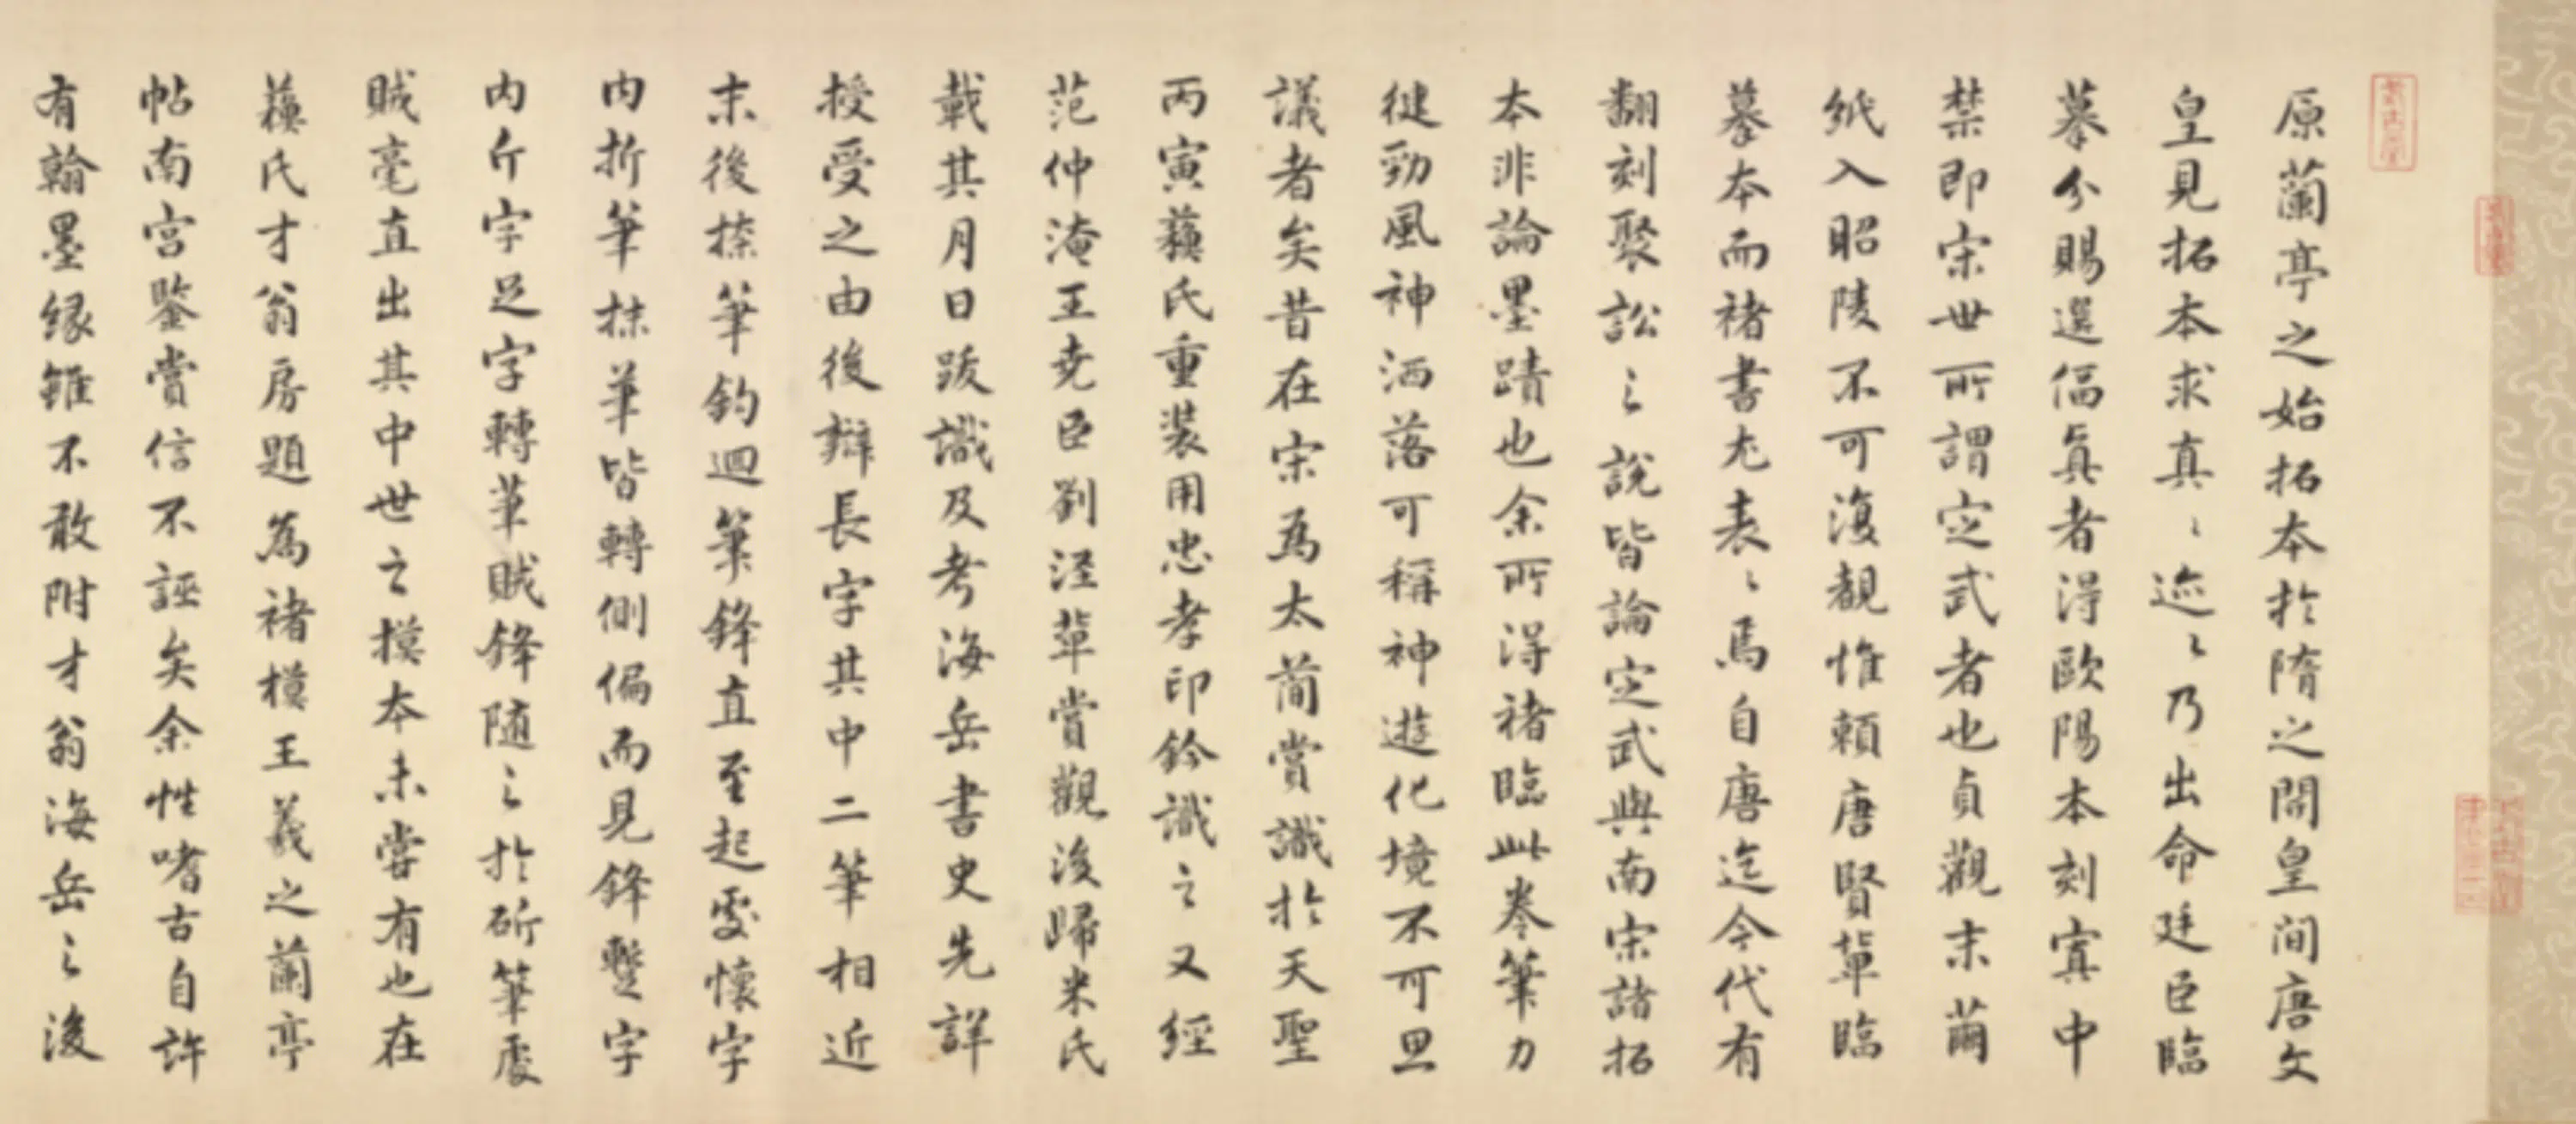 原蘭亭之始拓本於隋之開皇間唐文
皇見拓本求真〻迹〻乃出命廷臣臨
摹分賜選偪真者得歐陽本刻寘中
禁即宋世所謂定武者也貞觀末繭
紙入昭陵不可復覩惟賴唐賢輩臨
摹本而褚書尤表〻焉自唐迄今代有
翻刻聚訟之說皆論定武與南宋諸拓
本非論墨蹟也余所得褚臨此卷筆力
健勁風神洒落可稱神遊化境不可思
議者矣昔在宋為太簡賞識於天聖
丙寅蘓氏重裝用忠孝印鈐識之又經
范仲淹王尭臣劉涇輩賞觀後歸米氏
載其月日跋識及考海岳書史先詳
授受之由後辯長字其中二筆相近
末後捺筆鈎迴筆鋒直至起處懷字
内折筆抹筆皆轉側偏而見鋒蹔字
内斤字足字轉筆賊鋒隨之於斫筆處
賊毫直出其中世之摸本未嘗有也在
蘓氏才翁房題為褚模王羲之蘭亭
帖南宫鑒賞信不誣矣余性嗜古自許
有翰墨緣雖不敢附才翁海岳之後